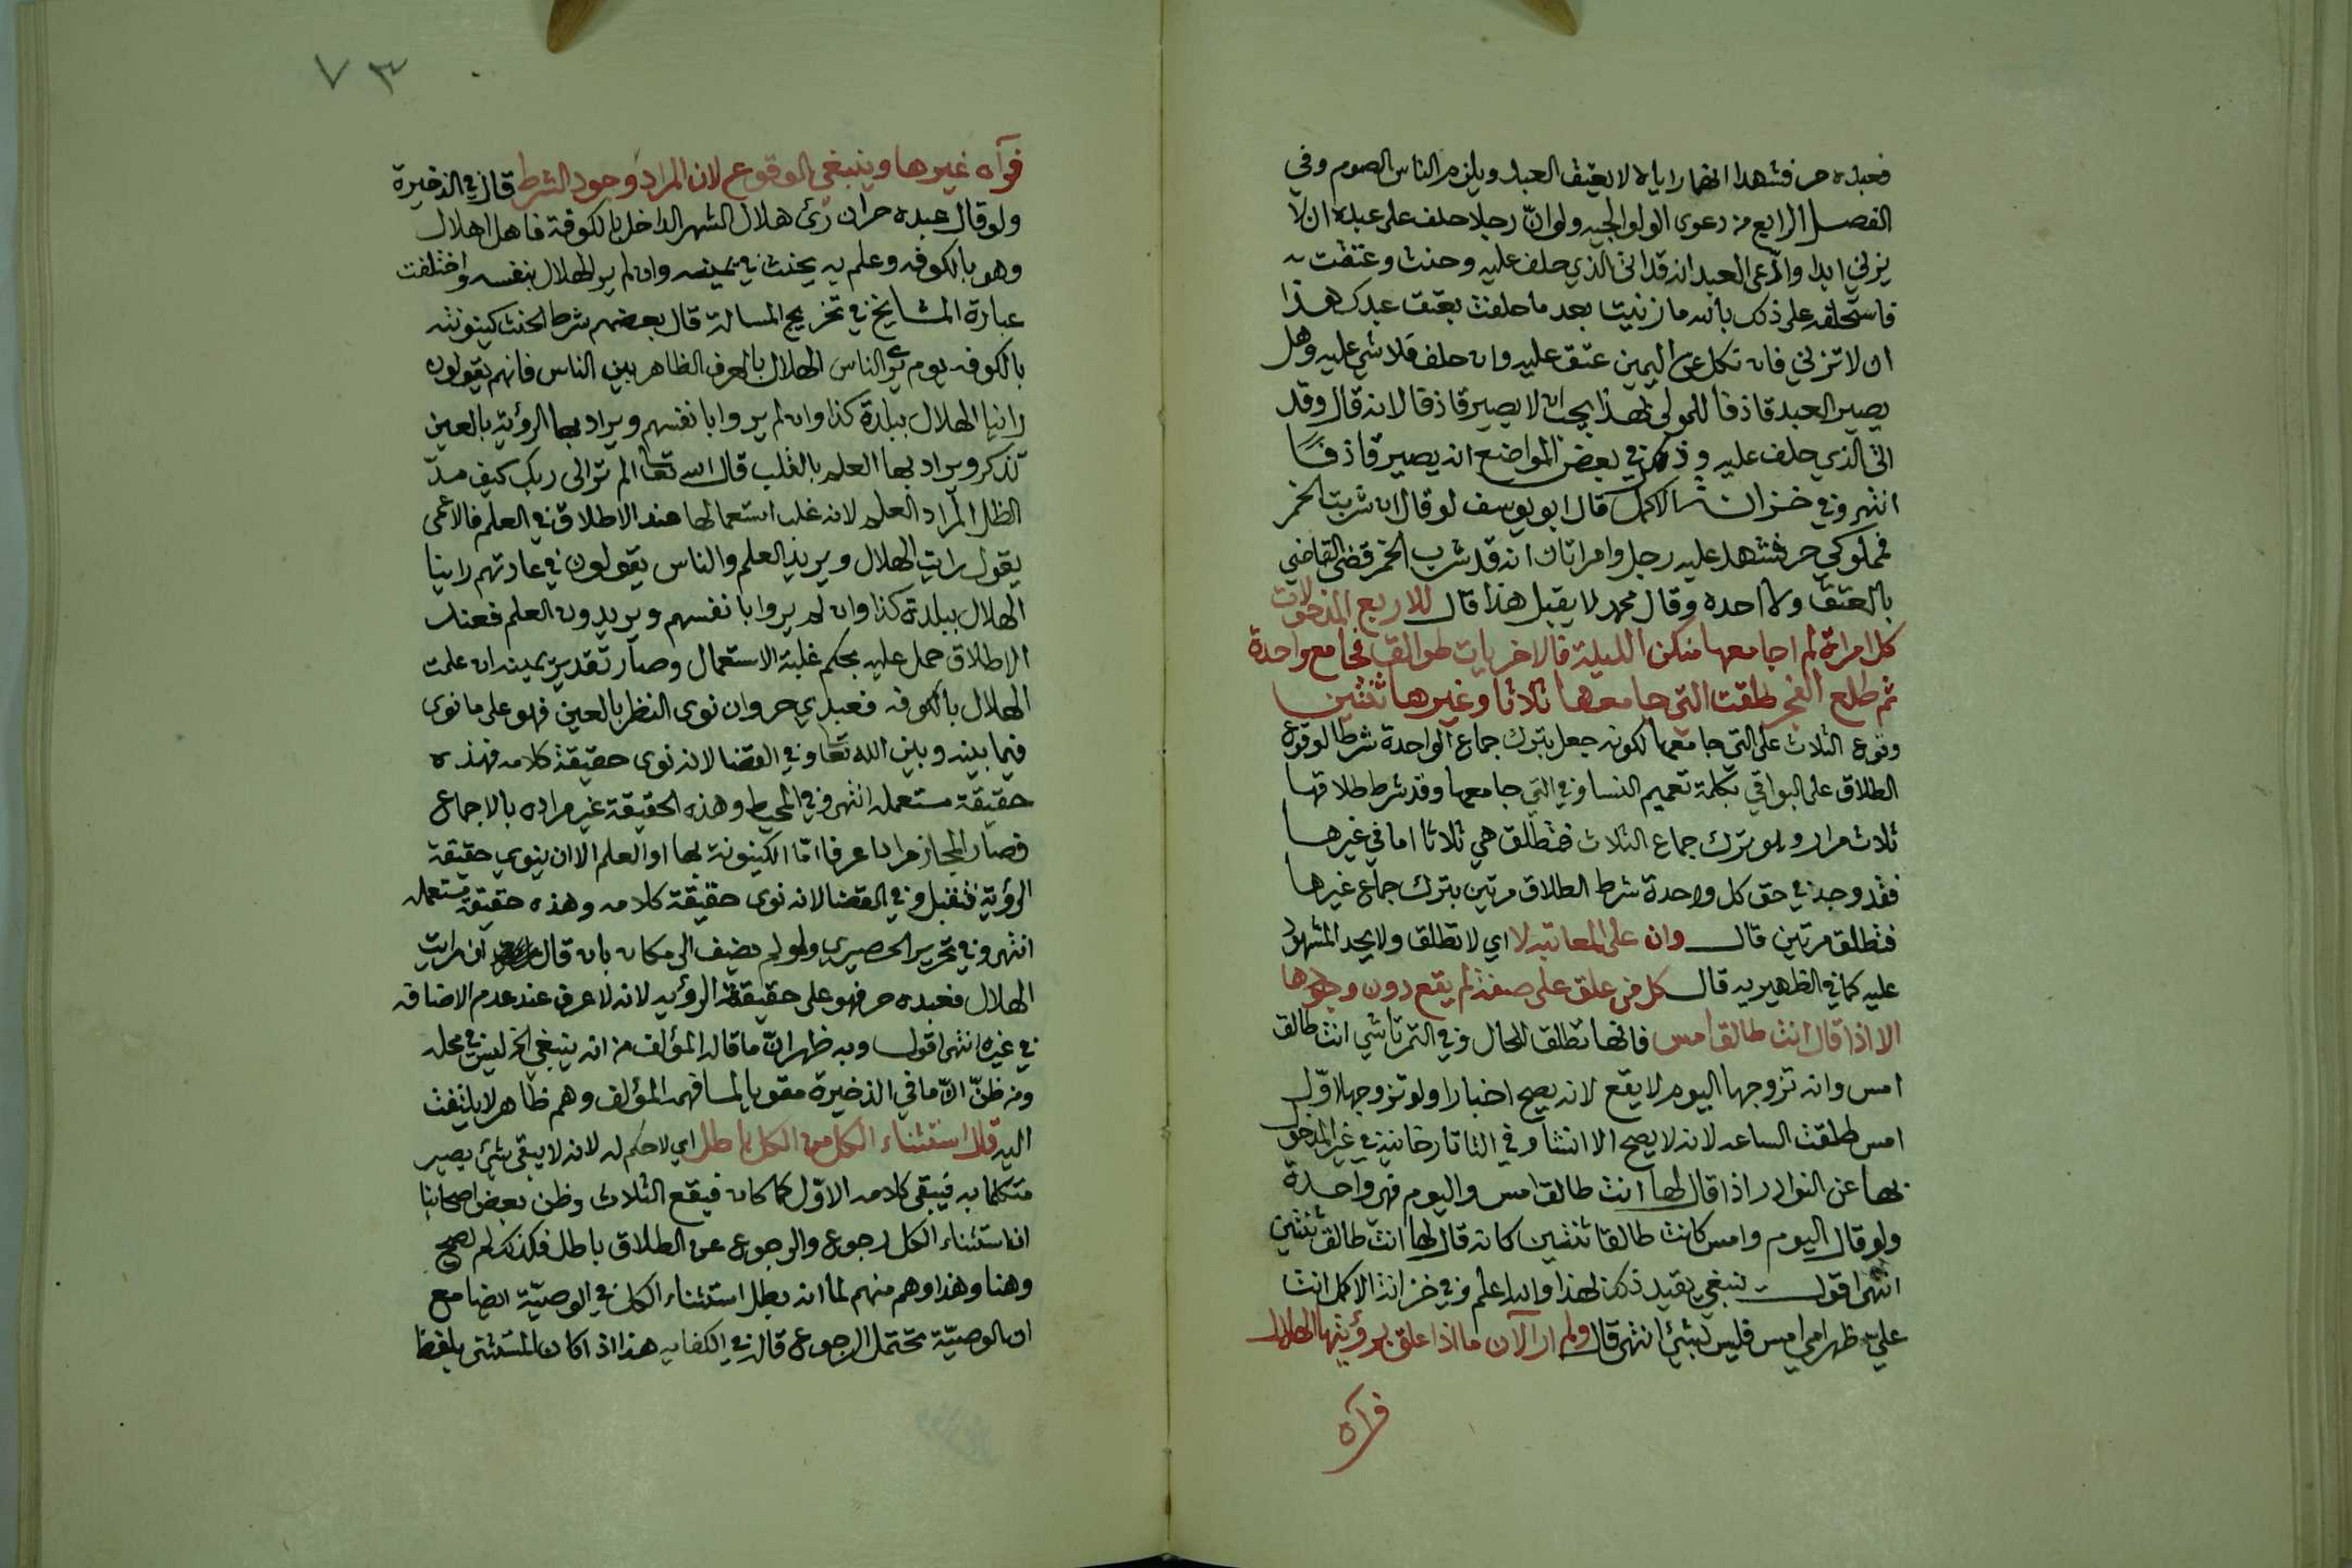 فعبده حر فشهدا انهما راياه لا يعتق العبد ويلزم الناس الصوم وفي
الفصل الرابع من دعوى الولوالجيه ولو انّ رجلا حلف على عبده ان لا
يزني ابدا وادّعى العبد انه قد اتى الذي حلف عليه وحنث وعتقت به
فاستحلفه على ذلك بالله ما زنيت بعد ما حلفت بعتق عبدك هذا
ان لا تزني فان نكل عن اليمين عتق عليه وان حلف فلا شي عليه وهل
يصير العبد قاذفا للمولى بهذا يجب ان لا يصير قاذفا لانه قال وقد
اتى الذي حلف عليه وذكر في بعض المواضع انه يصير قاذفًا
انتهى وفي خزانة الاكمل قال ابو يوسف لو قال ان شربت الخمر
فمملوكي حر فشهد عليه رجل وامراتان انه قد شرب الخمر قضى القاضي
بالعتق ولا احده وقال محمد لا يقبل هذا قال للاربع المدخولات
كل امراة لم اجامعها منكن الليلة فالاخريات طوالق فجامع واحدة
ثم طلع الفجر طلقت التي جامعها ثلاثا وغيرها ثنتين
وقوع الثلاث على التي جامعها لكونه جعل بترك جماع الواحدة شرطا لوقوع
الطلاق على البواقي بكلمة تعميم النسا وفي التي جامعها وقد شرط طلاقها
ثلاث مرار وهو ترك جماع الثلاث فتطلق هي ثلاثا اما في غيرها
فقد وجد في حق كل واحدة شرط الطلاق مرتين بترك جماع غيرها
فتطلق مرتين قال وان على المعاتبه لا اي لا تطلق ولا يحد المشهود
عليه كما في الظهيريه قال كل من علق على صفة لم يقع دون وجودها
الا اذا قال انت طالق امس فانها تطلق للحال وفي التمرتاشي انت طالق
امس وانه تزوجها اليوم لا يقع لانه يصح اخبارا ولو تزوجها اوّل
امس طلقت الساعه لانه لا يصح الا انشا وفي التاتارخانيه في غير المدخول
بها عن النوادر اذا قال لها انت طالق امس واليوم فهي واحدة
ولو قال اليوم وامس كانت طالقا ثنتين كانه قال لها انت طالق ثنتين
انتهى اقول ينبغي تقييد ذلك لهذا والله اعلم وفي خزانة الاكمل انت
عليّ كظهر امي امس فليس بشئ انتهى قال ولم ار الآن ما اذا علق برؤيتها الهلال
فرآه
٧٣
فرآه غيرها وينبغي الوقوع لان المراد وجود الشرط قال في الذخيرة
ولو قال عبده حر ان رئ هلال الشهر الداخل بالكوفة فاهل الهلال
وهو بالكوفه وعلم به يحنث في يمينه وان لم ير الهلال بنفسه واختلفت
عبارة المشايخ في تخريج المسالة قال بعضهم شرط الحنث كينونته
بالكوفه يوم يرى الناس الهلال بالعرف الظاهر بين الناس فانهم يقولون
راينا الهلال ببلدة كذا وان لم يروا بانفسهم ويراد بها الرؤية بالعين
تذكر ويراد بها العلم بالقلب قال الله تعالى الم تر الى ربك كيف مدّ
الظل المراد العلم لانه غلب استعمالها عند الاطلاق في العلم فالاعمى
يقول رايت الهلال ويريد العلم والناس يقولون في عادتهم راينا
الهلال ببلدة كذا وان لم يروا بانفسهم ويريدون العلم فعند
الاطلاق حمل عليه بحكم غلبة الاستعمال وصار تقدير يمينه ان علمت
الهلال بالكوفه فعبدي حر وان نوى النظر بالعين فهو على ما نوى
فيما بينه وبين الله تعالى وفي القضا لانه نوى حقيقة كلامه فهذه
حقيقة مستعمله انتهى وفي المحيط وهذه الحقيقة غير مراده بالاجماع
فصار المجاز مرادا عرفا امّا الكينونة بها او العلم الا ان ينوي حقيقة
الرؤية فتقبل وفي القضا لانه نوى حقيقة كلامه وهذه حقيقة مستعمله
انتهى وفي تحرير الحصيري ولو لم يضيف الى مكان بان قال ان رايت
الهلال فعبده حر فهو على حقيقة الرؤيه لانه لا عرف عند عدم الاضافه
في غيره انتهى اقول وبه ظهر انّ ما قاله المؤلف من انه ينبغي الخ ليس في محله
ومن ظنّ انّ ما في الذخيرة مقويا لما فهمه المؤلف وهم ظاهر لا يلتفت
اليه قال استثناء الكل من الكل باطل اي لا حكم له لانه لا يبقى شئ يصير
متكلما به فيبقى كلامه الاوّل كما كان فيقع الثلاث وظن بعض اصحابنا
ان استثناء الكل رجوع والرجوع عن الطلاق باطل فكذلك لم يصح
وهنا وهذا وهم منهم لما انه بطل استثناء الكل في الوصيّة ايضا مع
ان الوصيّة تحتمل الرجوع قال في الكفايه هذا اذا كان المستثنى بلفظ